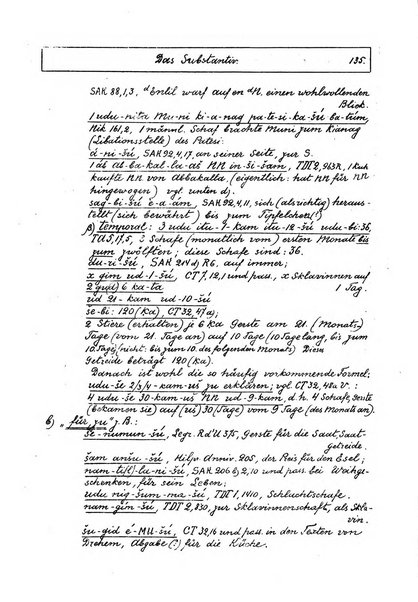 Das Substantiv. 135.
SAK 88,1,3, ᵈEnlil warf auf en ᵈN. einen wohlwollenden
Blick.
1 udu-nita Mu-ni ki-a-nag pa-te-si-ka-šú ba-túm,
Nik 161,2, 1 männl. Schaf brachte Muni zum Kianag
(Libationsstelle) des Patesi.
á-ni-šú, SAK 92,4,17, an seiner Seite, zur S.
1 áb ab-ba-kal-la-aš NN in-šám, TDT 2, 963 R, 1 Kuh
kaufte NN von Abbakalla. (eigentlich: hat NN für NN
hingewogen) vgl. unten dj.
sag-bi-šú é-a-ám, SAK 92,4,11, sich (als richtig) heraus-
stellt (sich bewährt) bis zum Tüpfelchen (!)
β) temporal: 3 udu itu-1-kam itu-12-šú udu-bi 36,
TU 5,17,5, 3 Schafe (monatlich vom) ersten Monat bis
zum zwölften; diese Schafe sind: 36.
du-rí-šú, SAK R6. auf immer;
x gim ud-1-šú, CT 7,12,1 und pass., x Sklavinnen auf
1 Tag.
2 gud 6 ka-ta
ud 21-kam ud-10-šú
še-bi: 120 (ka), CT 32,47
2 Stiere (erhalten) je 6 Ka Gerste am 21. (Monats-)
Tage (vom 21. Tage an) auf 10 Tage (10 Tage lang, bis zum
10. Tage) (nicht: bis zum 10. des folgenden Monats). Diese
Getreide beträgt 120 (Ka).
Danach ist wohl die so häufig vorkommende Formel:
udu-še 2/3/4-kam-uš zu erklären; vgl. CT 32, 48a V.:
4 udu-še 30-kam-uš NN ud-9-kam, d.h. 4 Schafe, Gerste
(bekamen sie) auf (uš) 30 (Tage) vom 9 Tage (des Monats an).
b) „für, zu“, z.B.:
še-numun-šú, Legr. Rd'U 375, Gerste für die Saat, Saat-
getreide.
šam anšu-šú, Hilpr. Anniv. 205, der Preis für den Esel;
nam-ti(l)-la-ni-šú, SAK 206 b) 2,10 und pass. bei Weihge-
schenken, für sein Leben;
udu nig-šum-ma-šú, TDT 1, 1410, Schlachtschafe.
nam-gim-šú, TDT 2,830, zur Sklavinnenschaft, als Skla-
vin.
šu-gid é-MU-šú, CT 32,16 und pass. in den Texten von
Drehem, Abgabe (?) für die Küche.